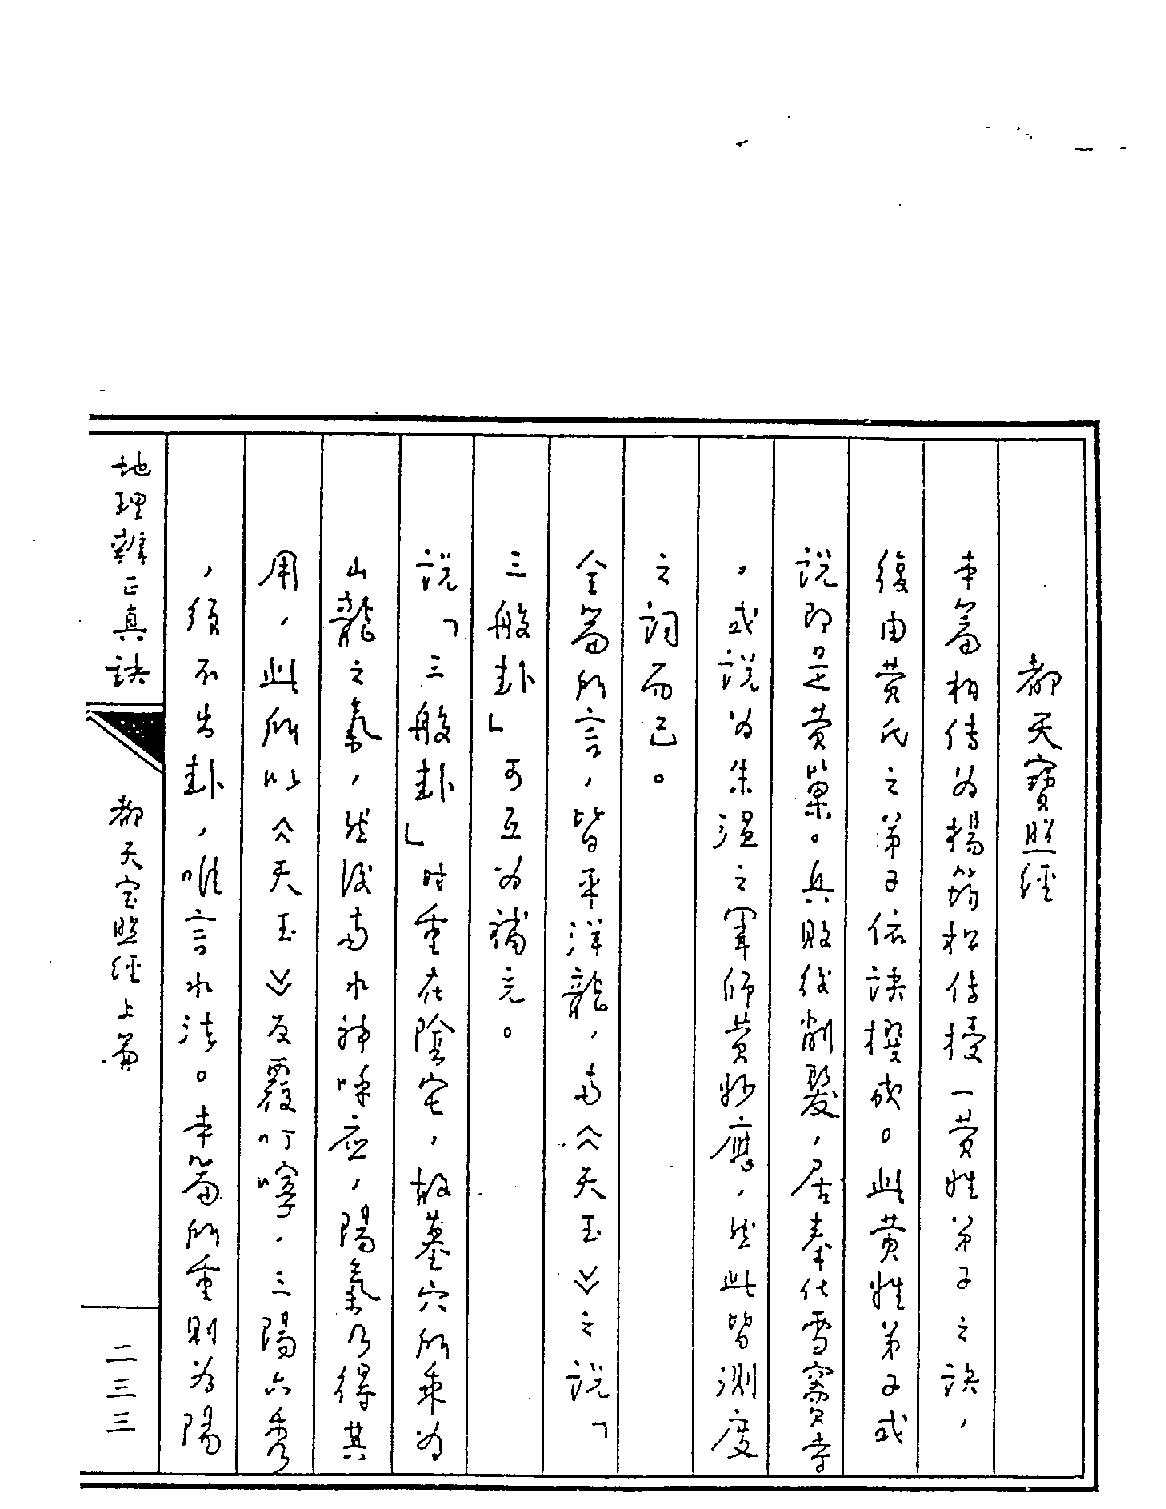 都天寶照經
本篇相傳為楊筠松傳授一黃姓弟子之訣，
後由黃氏之弟子依訣撰成。此黃姓弟子或
說即是黃巢。兵敗後削髮，居奉化雪竇寺
，或說為朱溫之軍師黃妙應，然此皆測度
之詞而已。
全篇所言，皆平洋龍，與《天玉》之說「
三般卦」可互為補充。
說「三般卦」時重在陰宅，故墓穴所乘為
山龍之氣，然後與水神呼應，陽氣乃得其
用，此所以《天玉》反覆叮嚀，三陽六秀
，須不出卦，唯言水法。本篇所重則為陽
地理辨正真訣
都天宝照經上篇
二三三